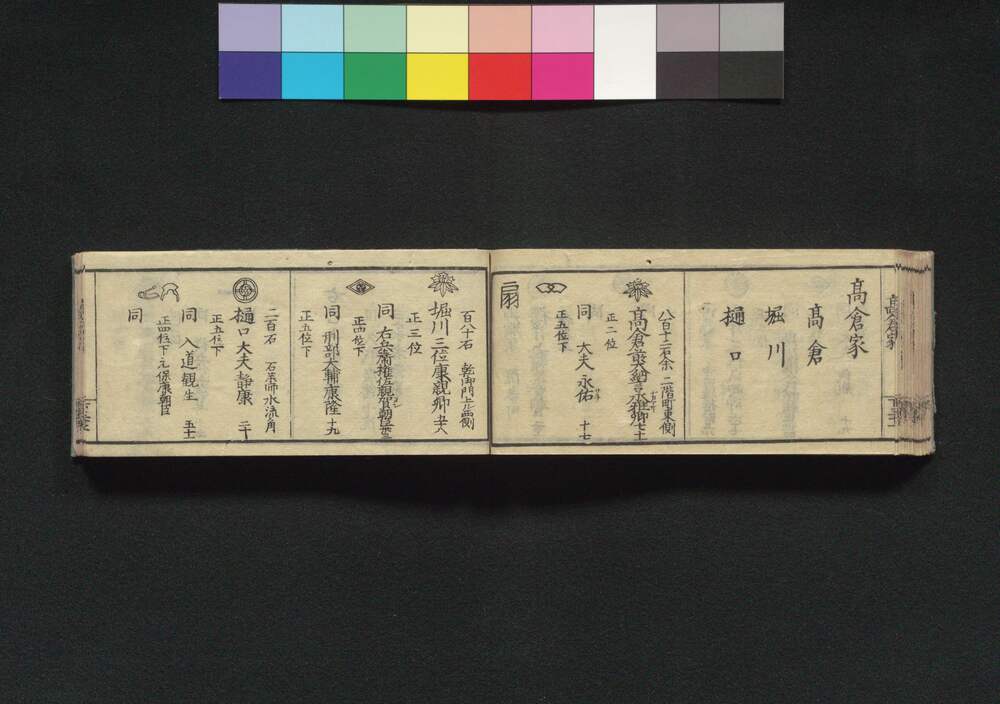 髙倉家
髙倉
堀川
樋口
八百十二石余 二階町東側
正二位
同 大夫永佑 十七
正五位下
扇
百八十石 乾御門上西側
堀川三位康親卿
正三位
同 右兵衛権佐親賀朝臣
正四位下
同 刑部大輔康隆 十九
正五位下
二百石 石薬師水流角
樋口大夫静康 二十
正五位下
同 入道観生 五十
正四位下元保康朝臣
同